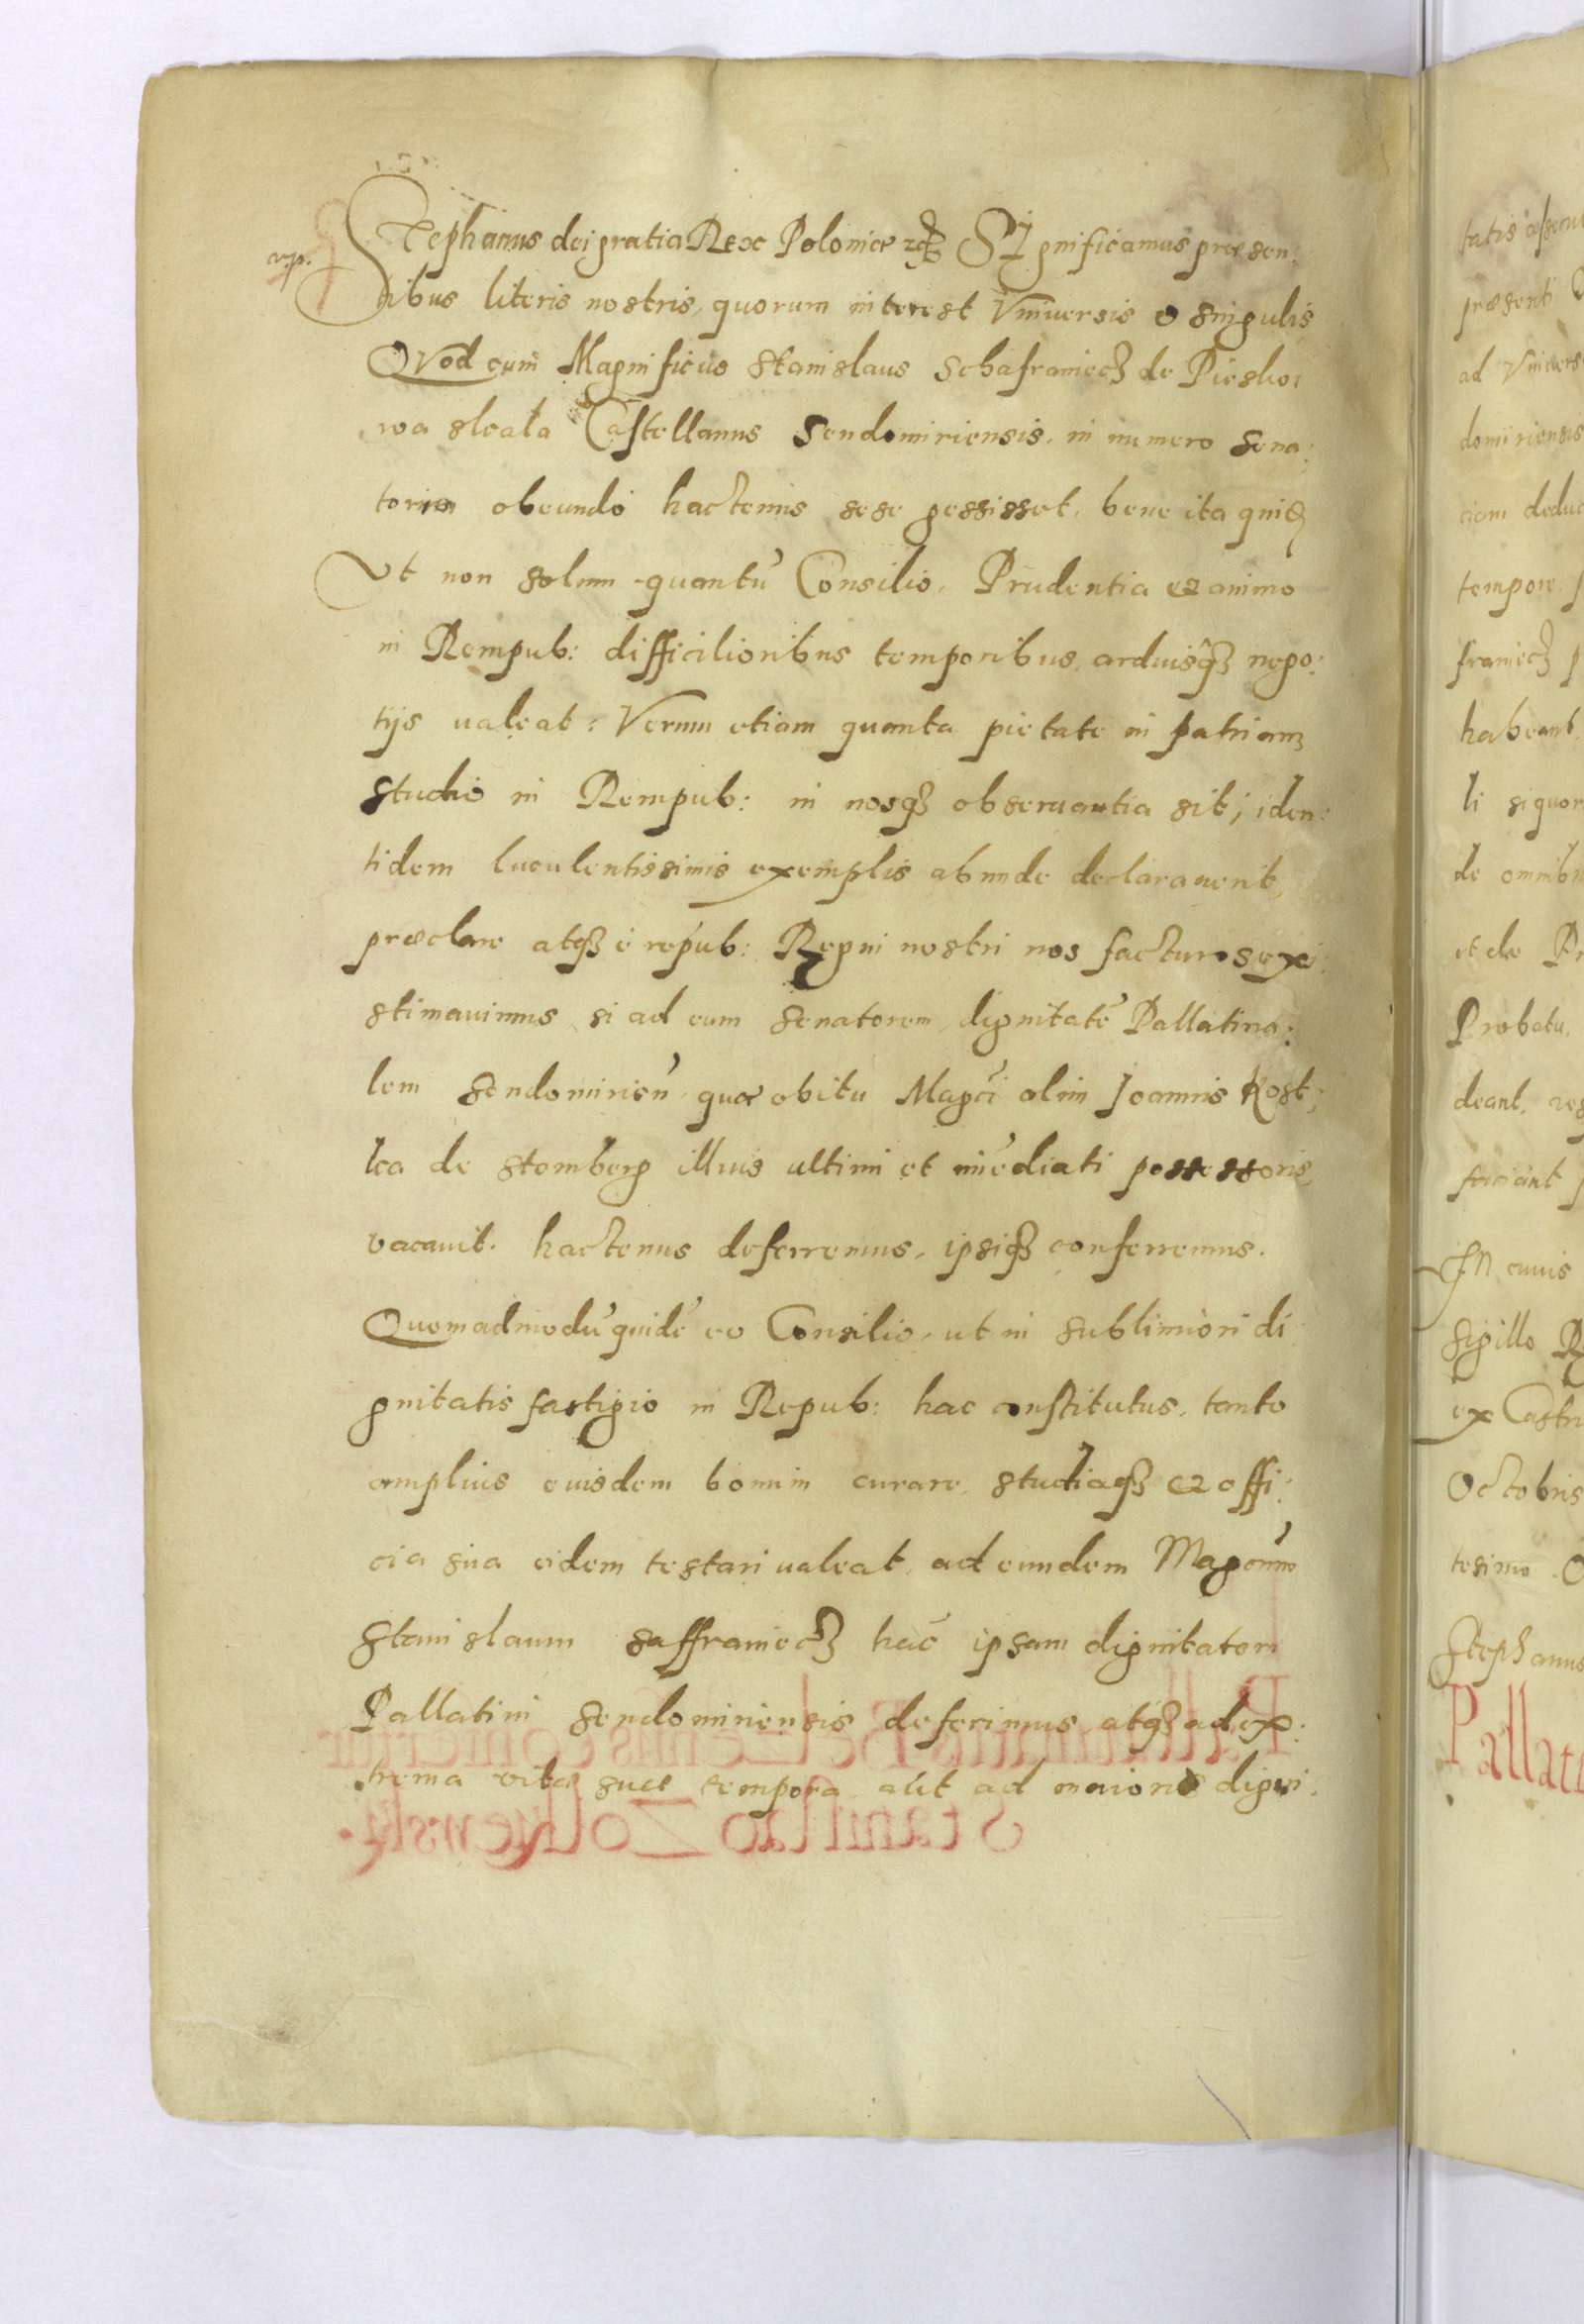 Stephanus dei gratia Rex Poloniæ Significamus præsen:
tibus literis nostris, quorum interest Vniuersis & singulis
Quod cum Magnificus Stanislaus Schafraniecz de Pieskor
wa skala Castellanus Sendomiriensis. in numero Sena:
torio obeundo hactenus sese gessisset, bene ita
Vt non solum quantu Consilio, Prudentia et animo
in Rempub: difficilioribus temporibus, arduisq3 nego:
tijs ualeat: Verum etiam quanta pietate in patriam
studio in Rempub: in nosq3 obseruantia sit; iden:
tidem luculentissimis exemplis abunde declarauerit,
præclare atq3 e repub: Regni nostri nos facturos exi:
stimauimus, si ad eum Senatorem, dignitatē Pallatina:
lem Sendomirień quæ obitu Magci olim Joannis Kost:
ka de Stomberg illius ultimi et imēdiati possessoris,
vacauit. hactenus deferremus, ipsiq3 conferremus.
Quemadmodū quidē eo Consilio, ut in sublimiori di
gnitatis fastigio in Repub: hac constitutus, tanto
amplius euisdem bonum curare, studiaq3 et offi:
cia sua eidem testari ualeat, ad eundem Magcum
Stanislaum Saffraniecz hāc ipsam dignitatem
Pallatini Sendomiriensis deferimus atq3 ad ex:
trema vitæ suæ tempora aut ad maioris digni:
tatis
præsenti
ad Vniuers
domiriensis
ciam deduc
tempore
franiecz p
habeant,
li siquor
de omnibu
et de Pr
Probatu,
deant, res
faciant
In cuius
Sigillo R
ex Castri
Octobris
tesimo
Stephanus
Pallati